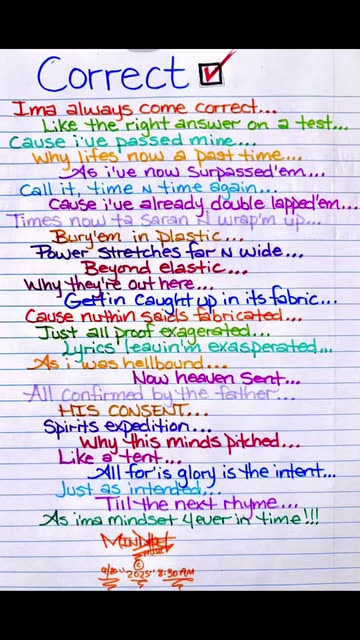 Correct
Ima always come correct...
Like the right answer on a test...
Cause i've passed mine...
Why lifes now a past time...
As i've now surpassed'em...
Call it, time N time again...
Cause i've already double lapped'em...
Times now ta Saran N wrap'm up...
Bury'em in plastic...
Power stretches far N wide...
Beyond elastic...
Why they're out here...
Gettin caught up in its fabric...
Cause nuthin saids fabricated...
Just all proof exagerated...
Lyrics leavin'm exasperated...
As i was hellbound...
Now heaven sent...
All confirmed by the father...
HIS CONSENT...
Spirits expedition...
Why this minds pitched...
Like a tent...
All for is glory is the intent...
Just as intended...
Till the next rhyme...
As ima mindset 4ever in time!!!
©
9/30 "2025" 8:30AM